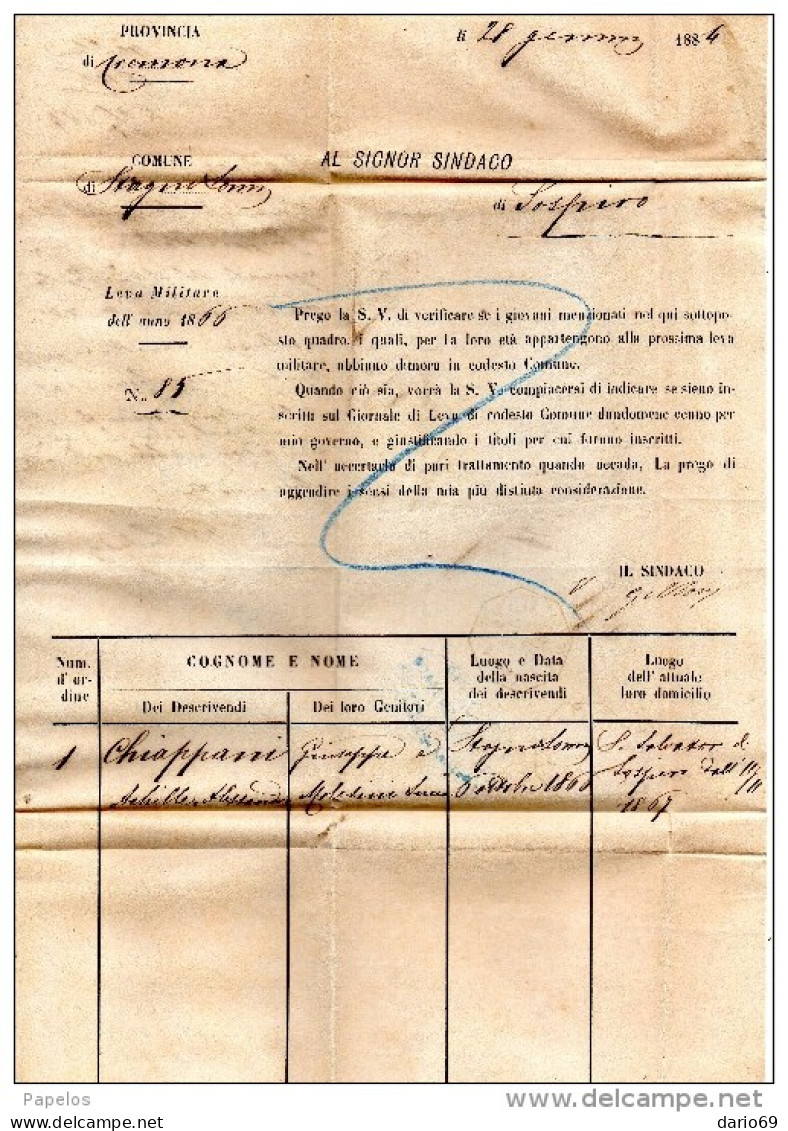 PROVINCIA
di Cremona
li 28 gennaio 1884
COMUNE
di Stagno Lomb
AL SIGNOR SINDACO
di Sospiro
Leva Militare
dell' anno 1866
N. 85
Prego la S. V. di verificare se i giovani menzionati nel qui sottopo-
sto quadro, i quali, per la loro età appartengono alla prossima leva
militare, abbiano dimora in codesto Comune.
Quando ciò sia, vorrà la S. V. compiacersi di indicare se sieno in-
scritti sul Giornale di Leva di codesto Comune dandomene cenno per
mio governo, e giustificando i titoli per cui furono inscritti.
Nell' accertarla di pari trattamento quando accada, La prego di
aggradire i sensi della mia più distinta considerazione.
IL SINDACO
Num. d' or- dine
COGNOME E NOME
Dei Descrivendi
Dei loro Genitori
Luogo e Data
della nascita
dei descrivendi
Luogo
dell' attuale
loro domicilio
1 Chiappani Giuseppe e Stagno Lomb S. Salvator di
Achille Alessandro 6 ottobre 1866 Sospiro dall' 11/11
1867
Papelos
delcampe.net
dario69